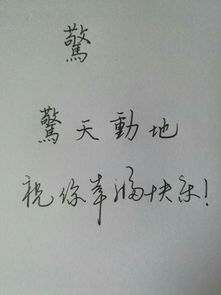 驚
驚天動地
祝你幸福快乐!